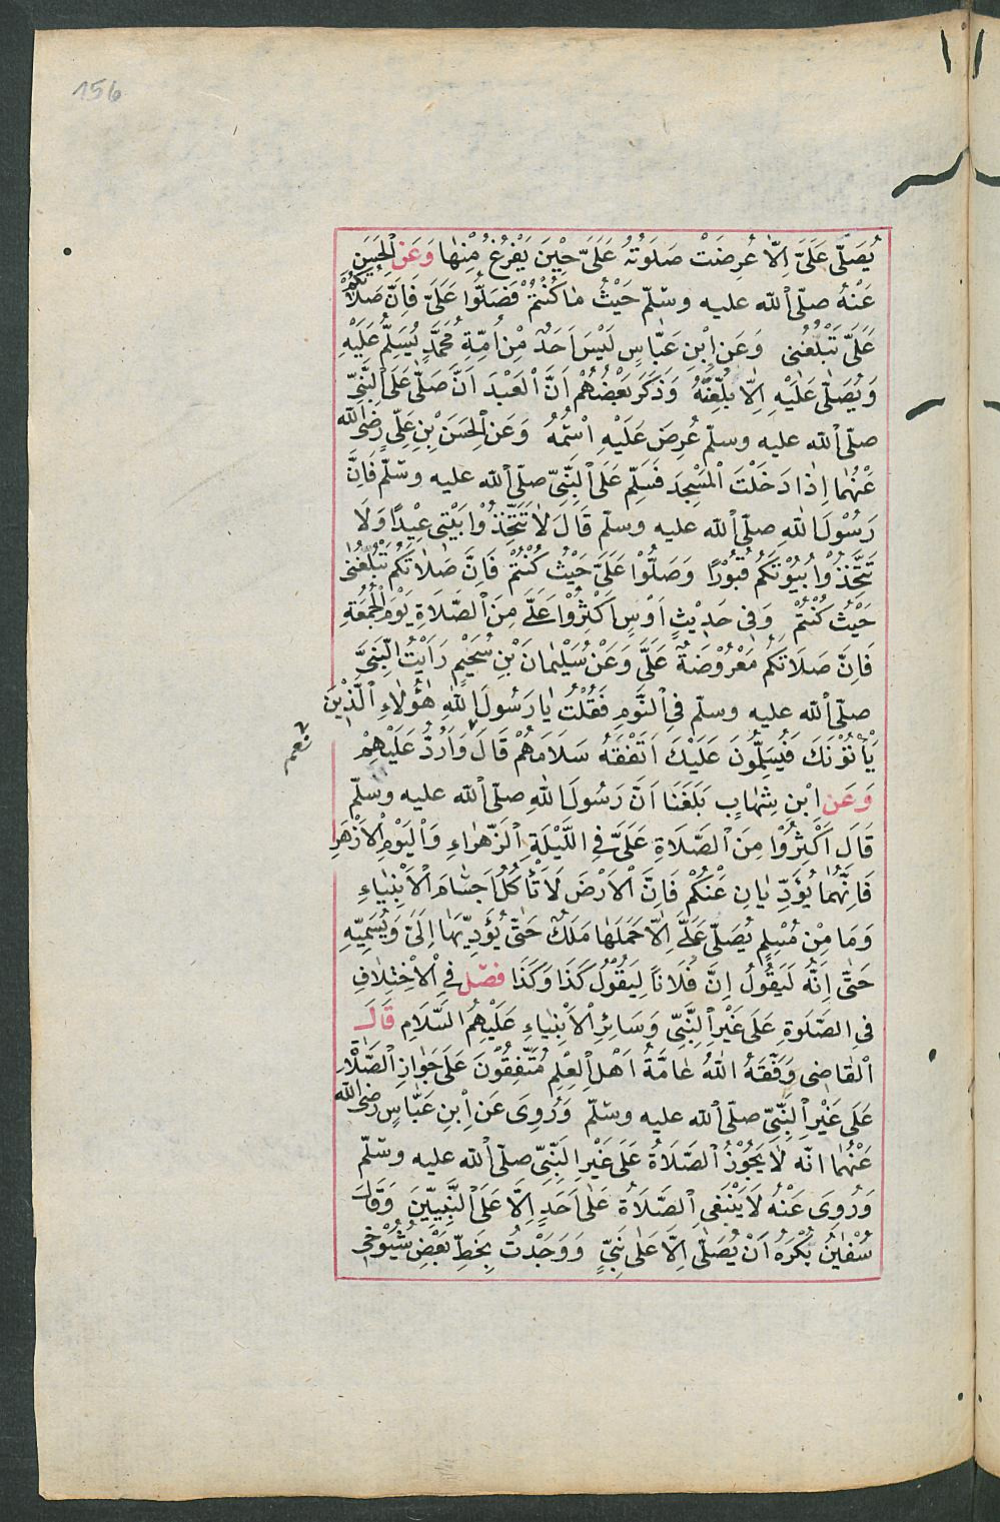 156
يُصَلِّي عَلَيَّ اِلَّا عُرِضَتْ صَلَوتُهُ عَلَيَّ حِيْنَ يَفْرُغُ مِنْهَا وَعَنِ الْحَسَنِ
عَنْهُ صلّى الله عليه وسلّم حَيْثُ مَا كُنْتُمْ فَصَلُّوا عَلَيَّ فَاِنَّ صَلَاتَكُمْ
عَلَيَّ تَبْلُغُنِى وَعَنِ ابْنِ عَبَّاسٍ لَيْسَ اَحَدٌ مِنْ اُمَّةِ مُحَمَّدٍ يُسَلِّمُ عَلَيْهِ
وَيُصَلِّى عَلَيْهِ اِلَّا بُلِّغَهُ وَذَكَرَ بَعْضُهُمْ اَنَّ الْعَبْدَ اَنَّ صَلَّى عَلَى النَّبِيِّ
صلّى الله عليه وسلّم عُرِضَ عَلَيْهِ اسْمُهُ وَعَنِ الْحَسَنِ بْنِ عَلِيٍّ رضى الله
عَنْهُمَا اِذَا دَخَلْتَ الْمَسْجِدَ فَسَلِّمْ عَلَى النَّبِيِّ صلّى الله عليه وسلّم فَاِنَّ
رَسُوْلَ اللهِ صلّى الله عليه وسلّم قَالَ لَا تَتَّخِذُوْا بَيْتِى عِيْدًا وَلَا
تَتَّخِذُوْا بُيُوْتَكُمْ قُبُوْرًا وَصَلُّوْا عَلَيَّ حَيْثُ كُنْتُمْ فَاِنَّ صَلَاتَكُمْ تَبْلُغُنِى
حَيْثُ كُنْتُمْ وَفِى حَدِيْثِ اَوْسٍ اَكْثِرُوْا عَلَيَّ مِنَ الصَّلَاةِ يَوْمَ الْجُمُعَةِ
فَاِنَّ صَلَاتَكُمْ مَعْرُوْضَةٌ عَلَيَّ وَعَنْ سُلَيْمَانَ بْنِ سُحَيْمٍ رَاَيْتُ النَّبِيَّ
صلّى الله عليه وسلّم فِى النَّوْمِ فَقُلْتُ يَا رَسُولَ اللهِ هٰؤُلَاءِ الَّذِيْنَ
يَأْتُوْنَكَ فَيُسَلِّمُونَ عَلَيْكَ اَتَفْقَهُ سَلَامَهُمْ قَالَ وَاَرُدُّ عَلَيْهِمْ
نعم
وَعَنِ ابْنِ شِهَابٍ بَلَغَنَا اَنَّ رَسُولَ اللهِ صلّى الله عليه وسلّم
قَالَ اَكْثِرُوْا مِنَ الصَّلَاةِ عَلَيَّ فِى اللَّيْلَةِ الزَّهْرَاءِ وَالْيَوْمِ الْاَزْهَرِ
فَاِنَّهُمَا يُؤَدِّيَانِ عَنْكُمْ فَاِنَّ الْاَرْضَ لَا تَأْكُلُ اَجْسَامَ الْاَنْبِيَاءِ
وَمَا مِنْ مُسْلِمٍ يُصَلِّى عَلَيَّ اِلَّا حَمَلَهَا مَلَكٌ حَتَّى يُؤَدِّيَهَا اِلَيَّ وَيُسَمِّيهِ
حَتَّى اِنَّهُ لَيَقُولُ اِنَّ فُلَانًا لِيَقُوْلُ كَذَا وَكَذَا فصل فِى الْاِخْتِلَافِ
فِى الصَّلَوةِ عَلَى غَيْرِ النَّبِيِّ وَسَائِرِ الْاَنْبِيَاءِ عَلَيْهِمُ السَّلَامِ قَالَ
الْقَاضِى وَفَّقَهُ اللهُ عَامَّةُ اَهْلِ الْعِلْمِ مُتَّفِقُوْنَ عَلَى جَوَازِ الصَّلَاةِ
عَلَى غَيْرِ النَّبِيِّ صلّى الله عليه وسلّم وَرُوِىَ عَنِ ابْنِ عَبَّاسٍ رضى الله
عَنْهُمَا انّه لَا يَجُوْزُ الصَّلَاةُ عَلَى غَيْرِ النَّبِيِّ صلّى الله عليه وسلّم
وَرُوِىَ عَنْهُ لَا يَنْبَغِى الصَّلَاةُ عَلَى اَحَدٍ اِلَّا عَلَى النَّبِيِّيْنَ وَقَالَ
سُفْيٰنُ يُكْرَهُ اَنْ يُصَلَّى اِلَّا عَلَى نَبِيٍّ وَوَجَدْتُ بِخَطِّ بَعْضِ شُيُوْخِى